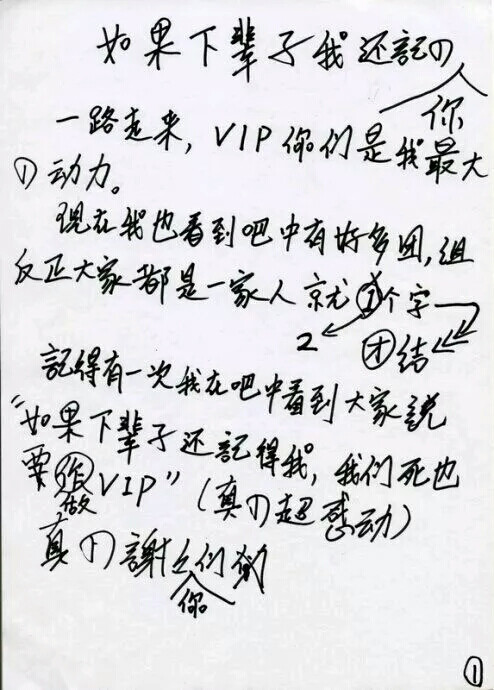 如果下辈子我还記の你
一路走来, VIP你们是我最大
の动力。
现在我也看到吧中有好多团,组
反正大家都是一家人 就2个字
团结
記得有一次我在吧中看到大家說
"如果下辈子还記得我, 我们死也
要做VIP" (真の超感动)
真の謝々你们
①